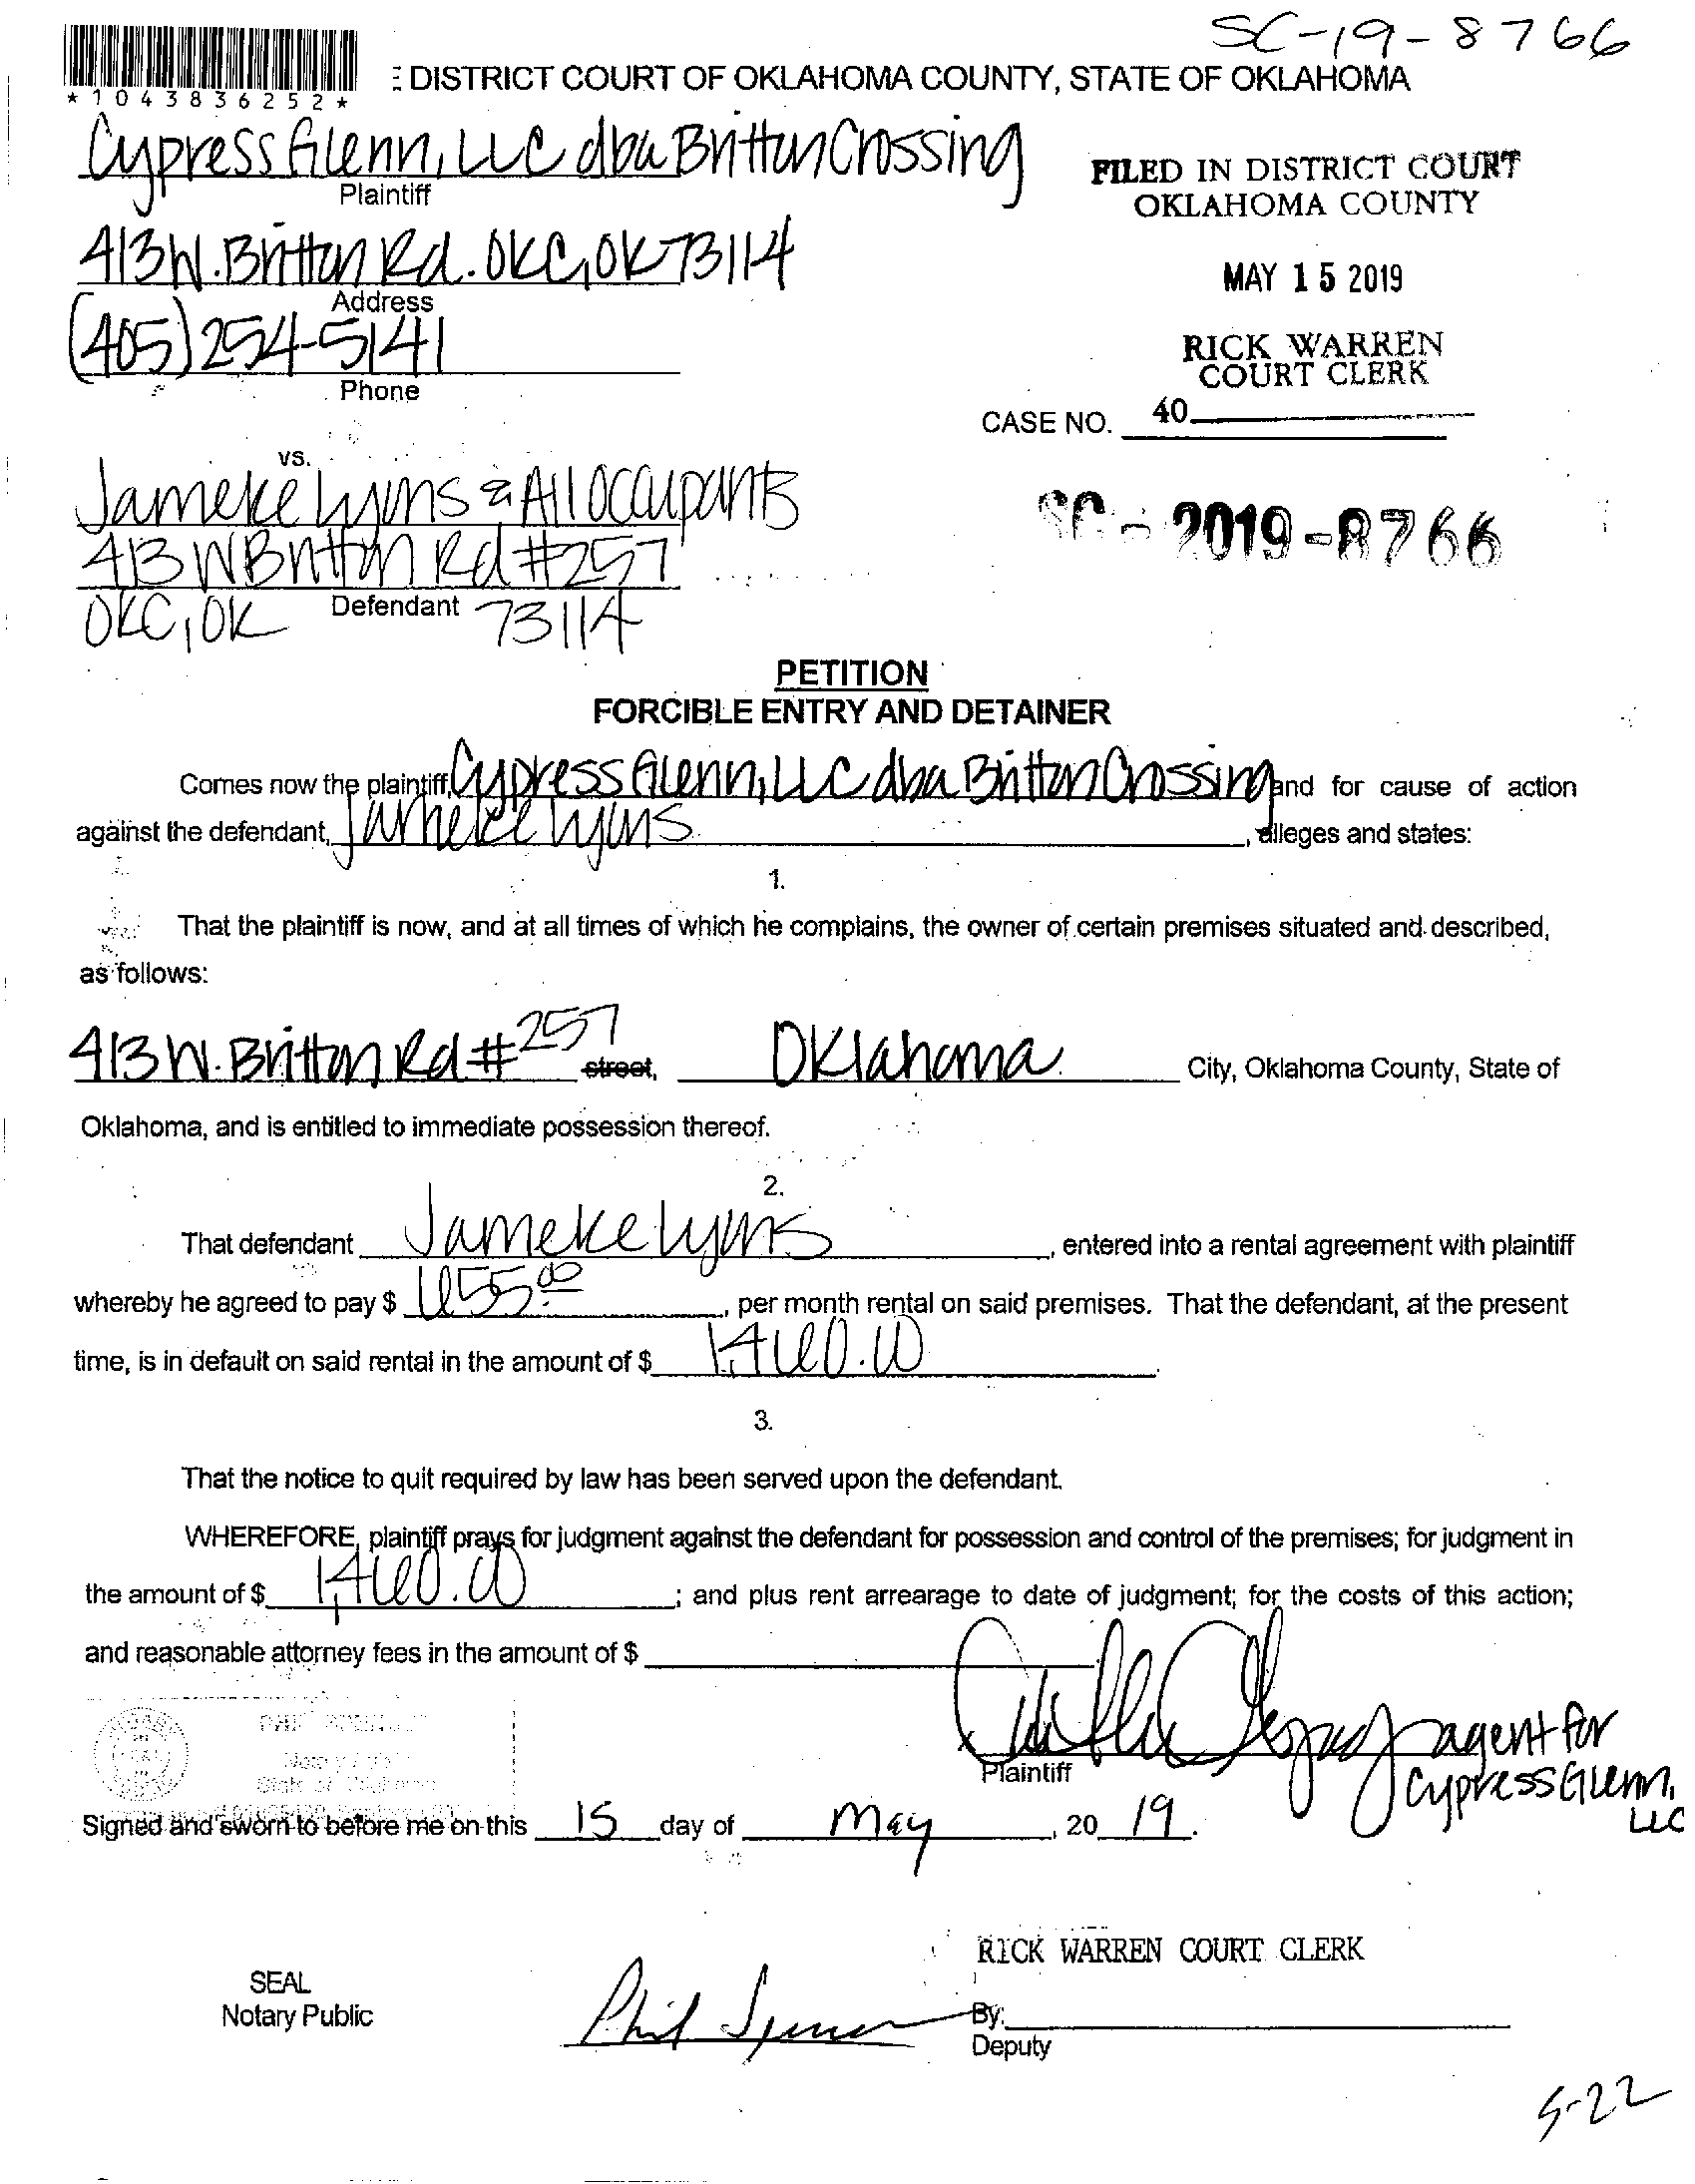 SC-19-8766
*1043836252*
E DISTRICT COURT OF OKLAHOMA COUNTY, STATE OF OKLAHOMA
Cypress Glenn, LLC dba Britton Crossing
Plaintiff
FILED IN DISTRICT COURT
OKLAHOMA COUNTY
413 W. Britton Rd. OKC, OK 73114
Address
MAY 15 2019
(405) 254-5141
Phone
RICK WARREN
COURT CLERK
CASE NO. 40
vs.
Jameke Lyons & All Occupants
SC-2019-8766
413 W Britton Rd #257
Defendant
OKC, OK 73114
PETITION
FORCIBLE ENTRY AND DETAINER
Comes now the plaintiff, Cypress Glenn, LLC dba Britton Crossing and for cause of action
against the defendant, Jameke Lyons, alleges and states:
1.
That the plaintiff is now, and at all times of which he complains, the owner of certain premises situated and described,
as follows:
413 W. Britton Rd #257 street, Oklahoma City, Oklahoma County, State of
Oklahoma, and is entitled to immediate possession thereof.
2.
That defendant Jameke Lyons, entered into a rental agreement with plaintiff
whereby he agreed to pay $ 655.00, per month rental on said premises. That the defendant, at the present
time, is in default on said rental in the amount of $ 1,460.00.
3.
That the notice to quit required by law has been served upon the defendant.
WHEREFORE, plaintiff prays for judgment against the defendant for possession and control of the premises; for judgment in
the amount of $ 1,460.00; and plus rent arrearage to date of judgment; for the costs of this action;
and reasonable attorney fees in the amount of $
agent for
Plaintiff
Cypress Glenn,
LLC
Signed and sworn to before me on this 15 day of May, 2019.
RICK WARREN COURT CLERK
SEAL
Notary Public
Phil Spencer
By:
Deputy
5-22